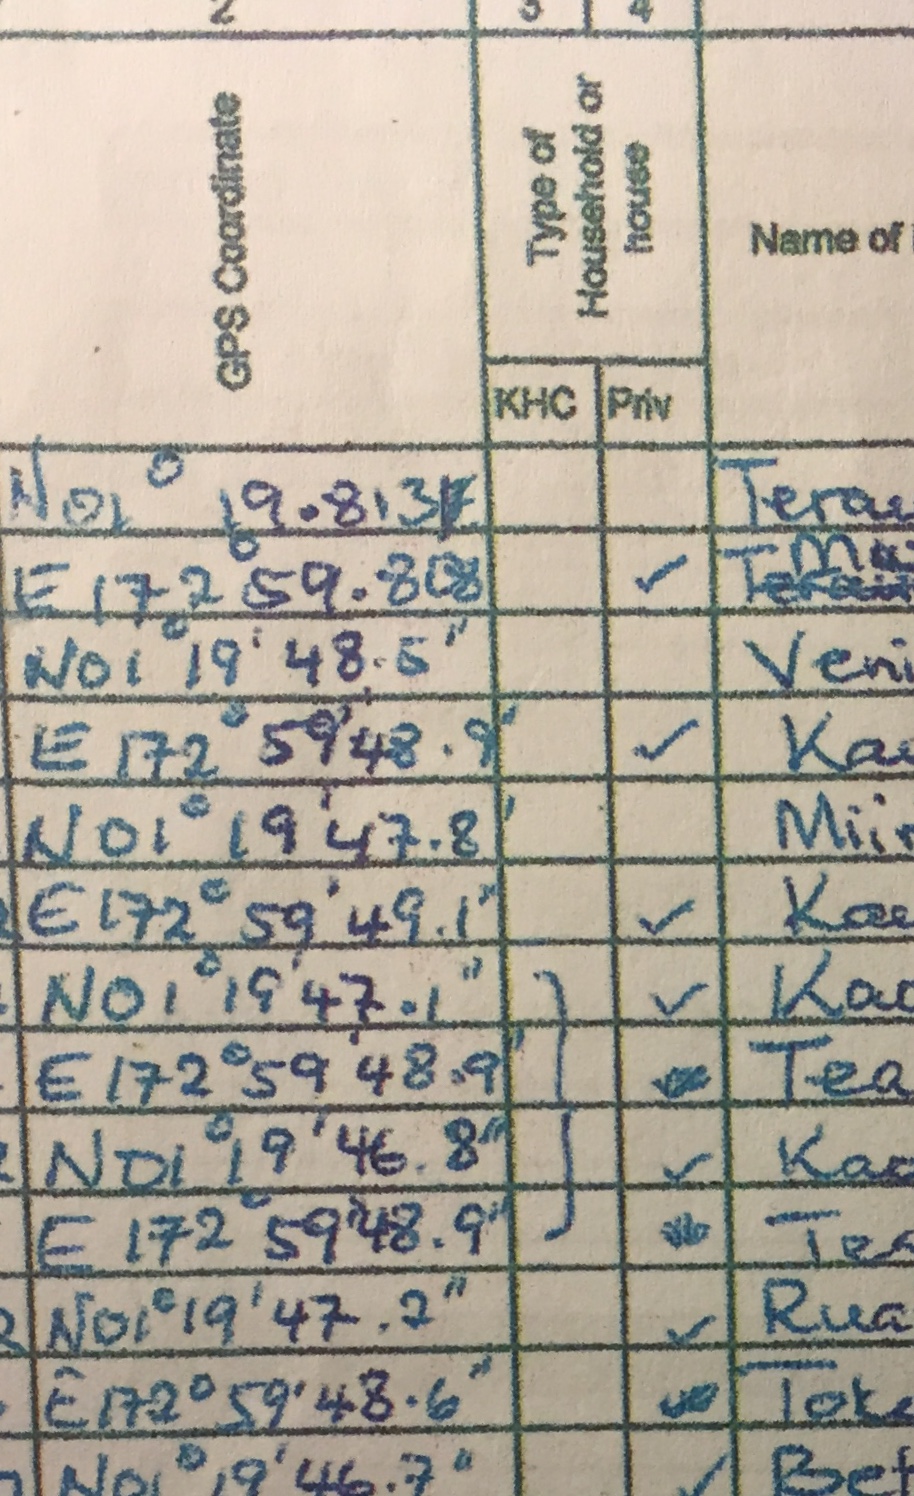 2 3 4
GPS Coordinate
Type of Household or house
Name of
KHC Priv
N01° 19.813
E 172° 59.808 ✓
N01° 19' 48.5"
E 172° 59' 48.9" ✓
N01° 19' 47.8"
E172° 59' 49.1" ✓
N01° 19' 47.1" ✓
E 172° 59' 48.9" Tea
N01° 19' 46.8" ✓
E 172° 59' 48.9"
N01° 19' 47.2" ✓ Rua
E172° 59' 48.6" Toke
N01° 19' 46.7" ✓ Bet